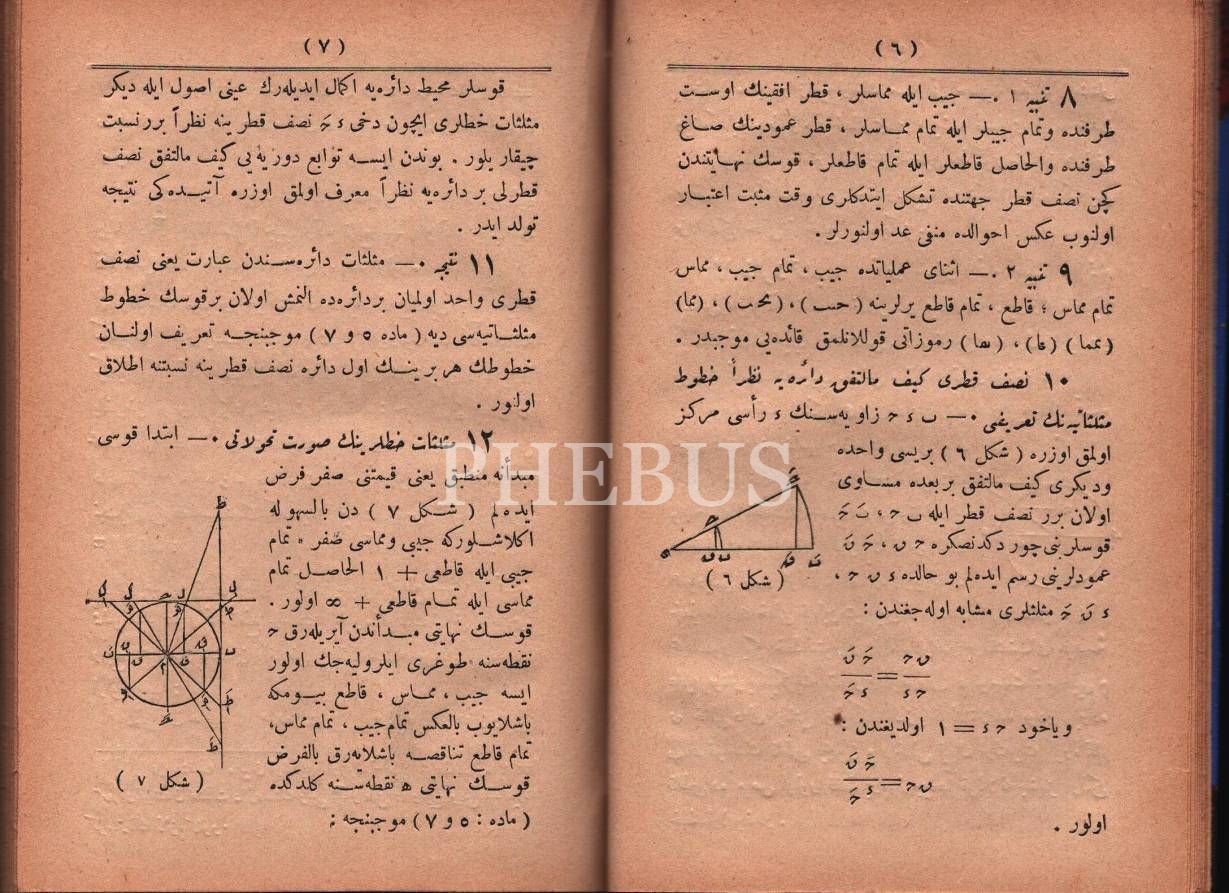 (٦)
٨ تنبيه ١ .— جيب ايله مماسلر ، قطر افقينك اوست
طرفنده وتمام جيبلر ايله تمام مماسلر ، قطر عمودينك صاغ
طرفنده والحاصل قاطعلر ايله تمام قاطعلر ، قوسك نهايتندن
كچن نصف قطر جهتنده تشكل ايتدكلرى وقت مثبت اعتبار
اولنوب عكس احوالده منفى عد اولنورلر .
٩ تنبيه ٢ .— اثناى عملياتده جيب ، تمام جيب ، مماس
تمام مماس ؛ قاطع ، تمام قاطع يرلرينه
رموزاتى قوللانلمق فائده‌يى موجبدر .
١٠ نصف قطرى كيف مالتفق دائره‌يه نظراً خطوط
مثلثاتيه‌نك تعريفى .— زاويه‌سنك ء رأسى مركز
اولمق اوزره ( شكل ٦ ) بريسى واحده
وديكرى كيف مالتفق بر بعده مساوى
اولان برر نصف قطر ايله
قوسلرينى چوردكدنصكره
عمودلرينى رسم ايده‌لم بو حالده
مثلثلرى مشابه اوله‌جغندن :
( شكل ٦ )
وياخود حء = ١ اولديغندن :
اولور .
(٧)
قوسلر محيط دائره‌يه اكمال ايديله‌رك عينى اصول ايله ديكر
مثلثات خطلرى ايچون دخى نصف قطر ينه نظراً برر نسبت
چيقار يلور . بوندن ايسه توابع دوريه‌يى كيف مالتفق نصف
قطرلى بر دائره‌يه نظراً معرف اولمق اوزره آتيده‌كى نتيجه
تولد ايدر .
١١ نتيجه .— مثلثات دائره‌سندن عبارت يعنى نصف
قطرى واحد اولميان بردائره‌ده النمش اولان برقوسك خطوط
مثلثاتيه‌سى ديه ( ماده ٥ و ٧ ) موجبنجه تعريف اولنان
خطوطك هر برينك اول دائره نصف قطر ينه نسبتنه اطلاق
اولنور .
١٢ مثلثات خطلرينك صورت تحولاتى .— ابتدا قوسى
مبدأنه منطبق يعنى قيمتنى صفر فرض
ايده‌لم ( شكل ٧ ) دن بالسهوله
اكلاشلوركه جيبى ومماسى صفر ، تمام
جيبى ايله قاطعى + ١ الحاصل تمام
مماسى ايله تمام قاطعى + ∞ اولور .
قوسك نهايتى مبدأدن آيريله‌رق ح
نقطه‌سنه طوغرى ايلروليه‌جك اولور
ايسه جيب ، مماس ، قاطع بيومكه
باشلايوب بالعكس تمام جيب ، تمام مماس ،
تمام قاطع تناقصه باشلانه‌رق بالفرض
قوسك نهايتى ه نقطه‌سنه كلدكده
( شكل ٧ )
( ماده : ٥ و ٧ ) موجبنجه :
PHEBUS